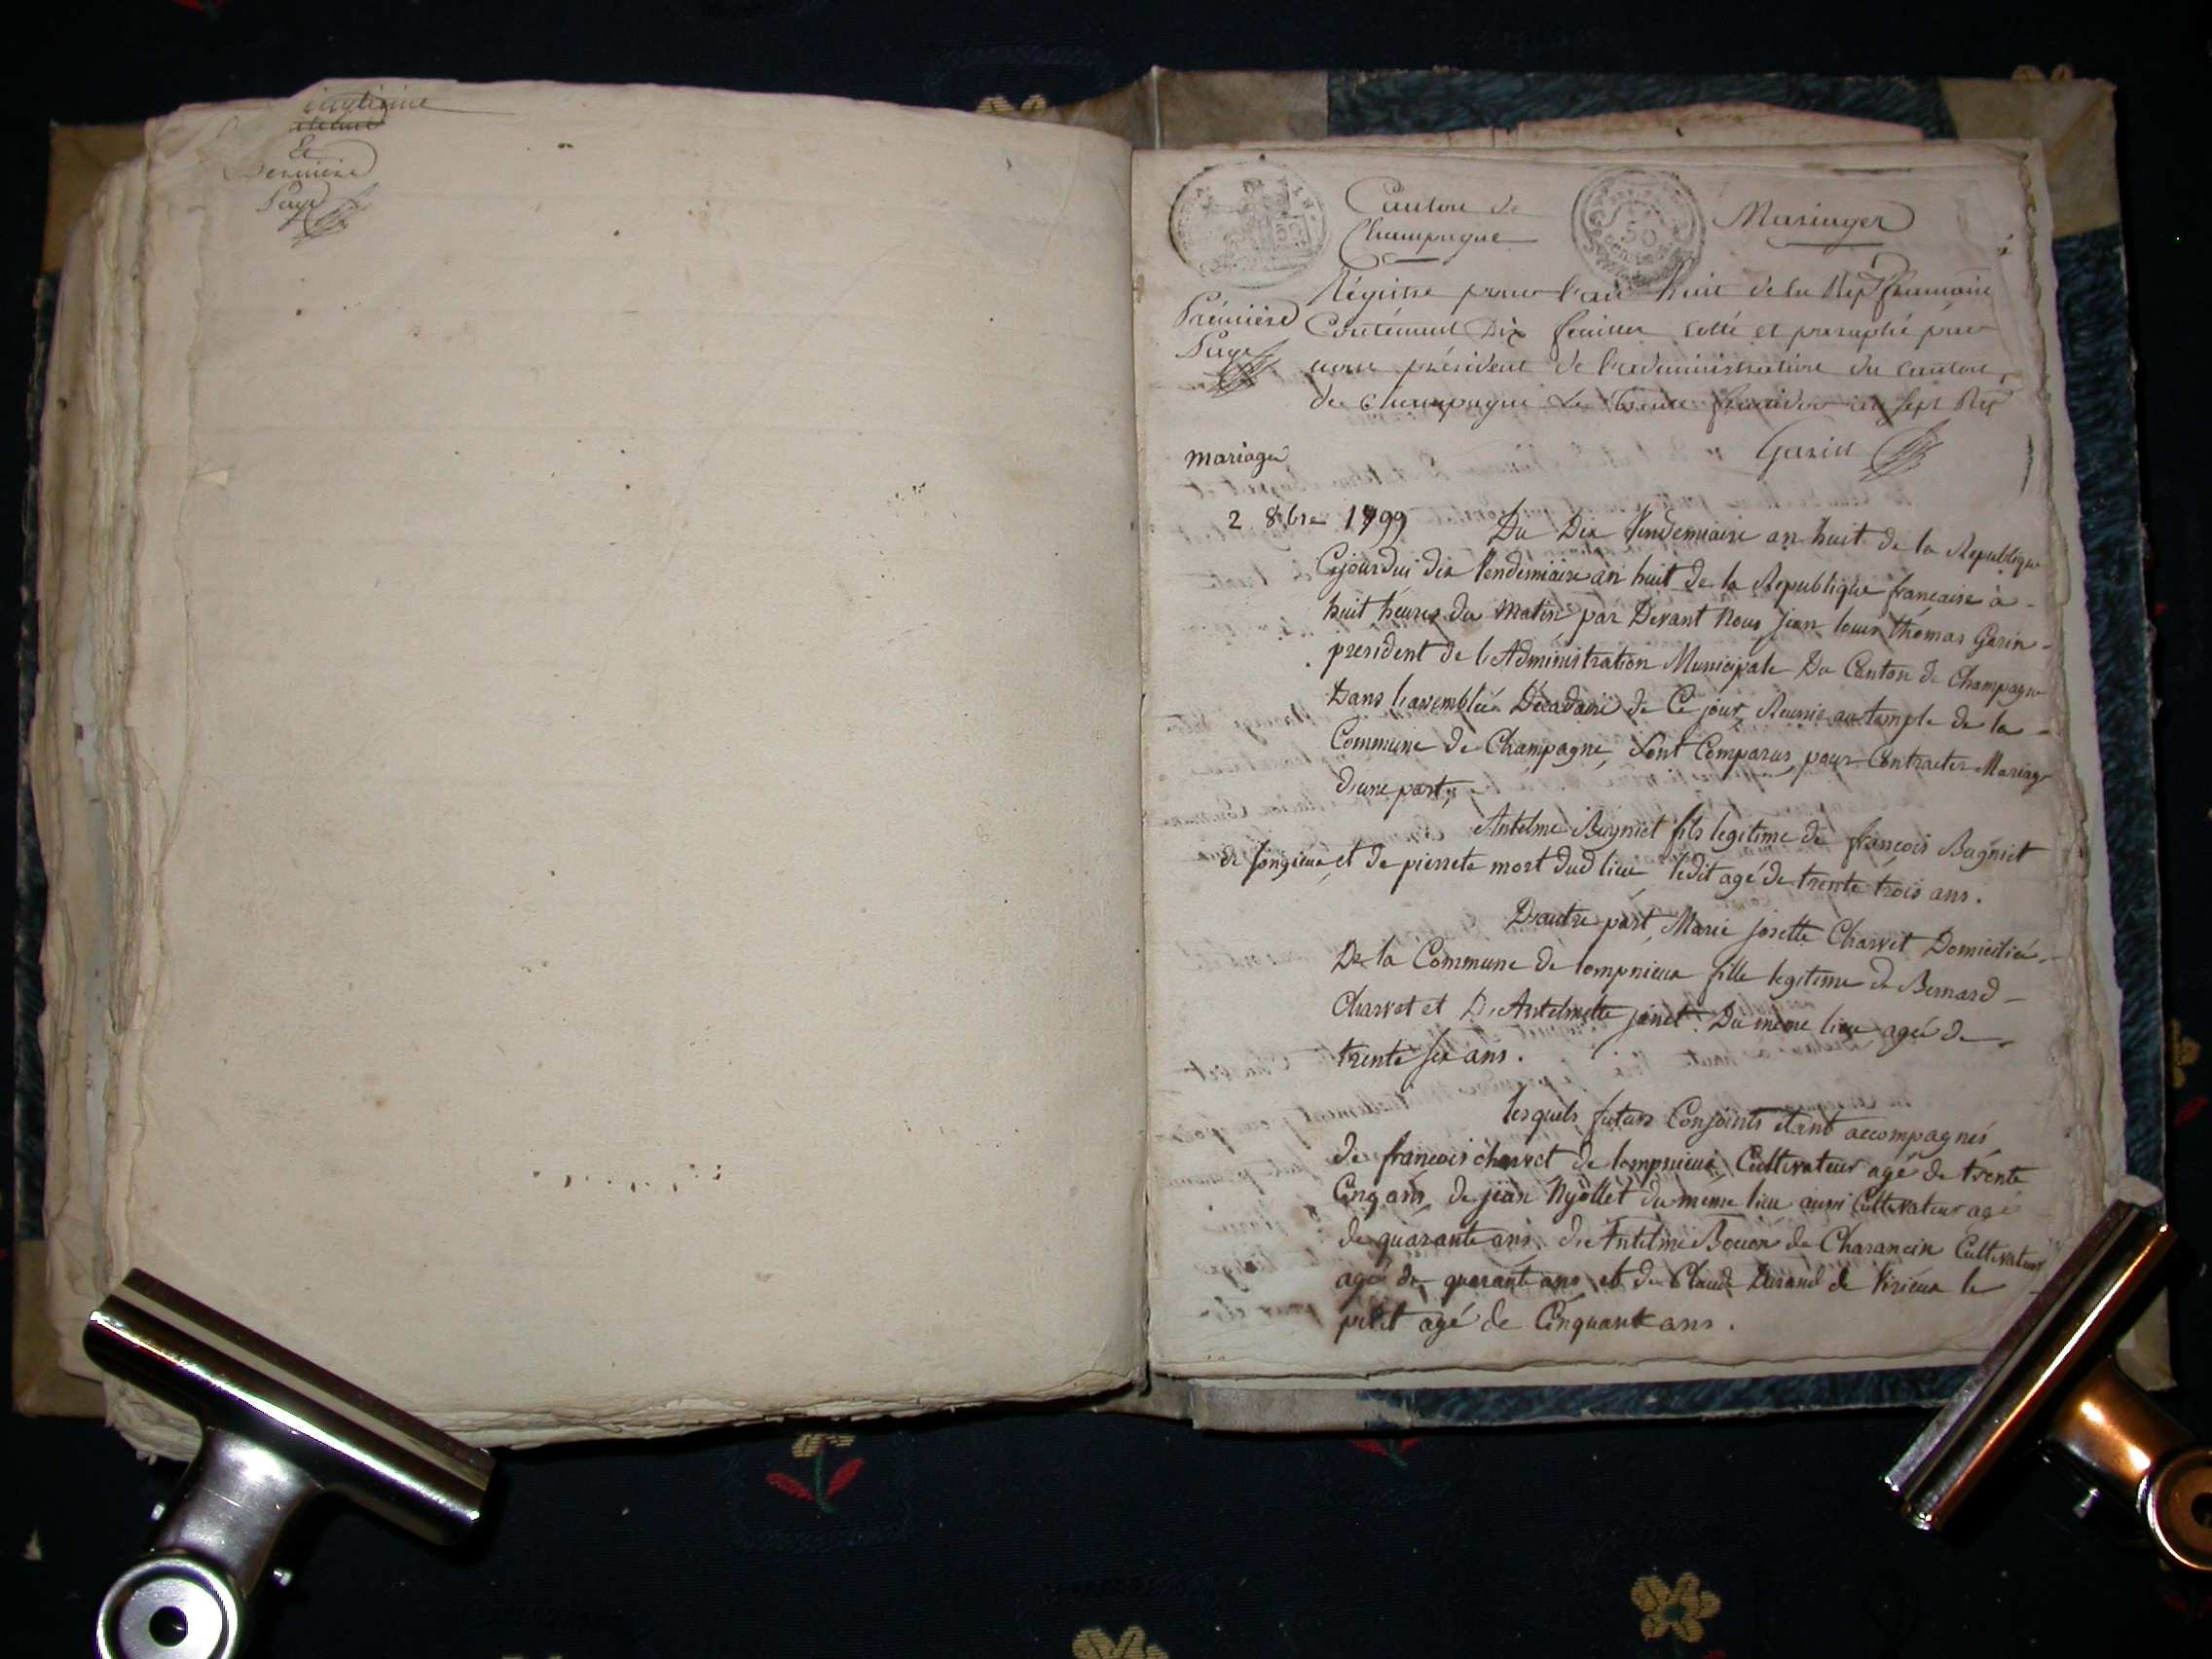 Et
Derniere
Page
Canton de
Champagne
50
Mariages
Premiere
Page
Régistre pour l'an huit de la Rep. francaise
Contenant Dix feuilles cotté et paraphé par
nous président de l'administration du canton
de Champagne Le Trente fructidor an sept Rep
Garin
mariages
2 8bre 1799
Du Dix Vendemiaire an huit de la Republique
Cejourdui dix Vendemiaire an huit de la Republique francaise a
huit heures du Matin par Devant Nous jean louis thomas Garin
president de l'Administration Municipale Du Canton de Champagne
Dans l'assemblée Décadaire de Ce jour, Reunie au temple de la
Commune de Champagne, sont Comparus, pour Contracter Mariage
d'une part,
Antelme Bugniet fils legitime de francois Bugniet
de songieux, et de pierrete mort dud lieu ledit agé de trente trois ans.
D'autre part, Marie josette Charvet Domiciliée
De la Commune de lompnieux fille legitime de Bernard
Charvet et D'Antelmette janet Du même lieu agée de
trente six ans.
lesquels futurs Conjoints etant accompagnés
de francois charvet de lompnieux, Cultivateur agé de trente
Cinq ans, de jean Nyollet du même lieu aussi Cultivateur agé
de quarante ans, d'Antelme Bouon de Charancin Cultivateur
agé de quarante ans et de Claude Durand de Virieux le
petit agé de Cinquante ans.